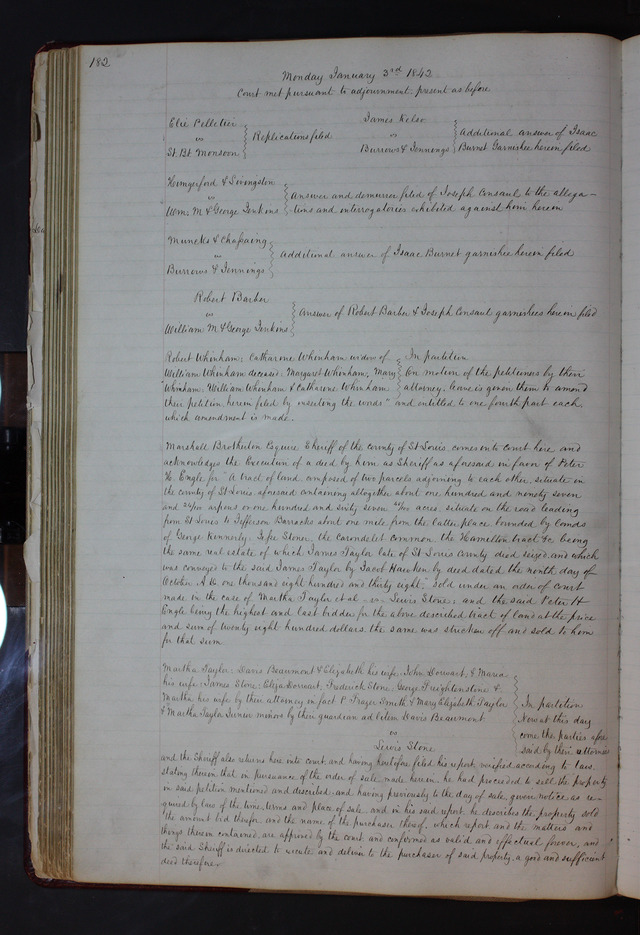 182
Monday January 3rd 1842
Court met pursuant to adjournment, present as before
Elie Pelletier
vs
St. Bt. Monsoon
Replications filed
James Kelso
vs
Burrows & Jennings
Additional answer of Isaac
Burnet Garnishee herein filed
Hungerford & Livingston
vs
Wm. M. & George Jenkins
Answer and demurrer filed of Joseph Consaul to the allega-
-tions and interrogatories exhibited against him herein
Muncks & Chassaing
vs
Burrows & Jennings
Additional answer of Isaac Burnet garnishee herein filed
Robert Barber
vs
William M. & George Jenkins
Answer of Robert Barber & Joseph Consaul garnishees herein filed
Robert Whinham; Catharine Whinham widow of
William Whinham deceased; Margaret Whinham; Mary
Whinham; William Whinham & Catharine Whinham
In partition
On motion of the petitioners by their
attorney, leave is given them to amend
their petition herein filed by inserting the words "and entitled to one fourth part each,
which amendment is made.
Marshall Brotherton Esquire Sheriff of the county of St Louis comes into Court here and
acknowledges the Execution of a deed by him as Sheriff as aforesaid in favor of Peter
H. Engle for "A tract of land composed of two parcels adjoining to each other, situate in
the county of St Louis aforesaid containing altogether about one hundred and ninety seven
and arpens or one hundred and sixty seven acres situate on the road leading
from St Louis to Jefferson Barracks about one mile from the latter place bounded by lands
of George Kennerly, Jesse Stoner, the Carondelet common the Hamilton tract &c being
the same real estate of which James Taylor late of St Louis County died seized and which
was conveyed to the said James Taylor by Jacob Hawken by deed dated the ninth day of
October A.D. one thousand eight hundred and thirty eight;" sold under an order of court
made in the case of Martha Taylor et al -vs- Lewis Stone; and the said Peter H
Engle being the highest and last bidder for the above described tract of land at the price
and sum of twenty eight hundred dollars the same was stricken off and sold to him
for that sum
Martha Taylor; Davis Beaumont & Elizabeth his wife; John Doreaart, & Maria
his wife; James Stone; Eliza Dorreart; Frederick Stone; George Freightonstine &
Martha his wife by their attorney in fact P. Frazer Smith & Mary Elizabeth Taylor
& Martha Taylor Junior minors by their guardian ad litem Davis Beaumont
vs
Lewis Stone
In partition
Now at this day
come the parties afore-
said by their attornies
and the Sheriff also returns here into court, and having heretofore filed his report, verified according to law,
stating therein, that in pursuance of the order of sale made herein he had proceeded to sell the property
in said petition mentioned and described, and having previously to the day of sale given notice as re-
quired by law of the time, terms and place of sale, and in his said report he describes the property sold
the amount bid therefor and the name of the purchaser thereof, which report and the matters and
things therein contained, are approved by the court and confirmed as valid and effectual forever, and
the said Sheriff is directed to execute and deliver to the purchaser of said property, a good and sufficient
deed therefore.